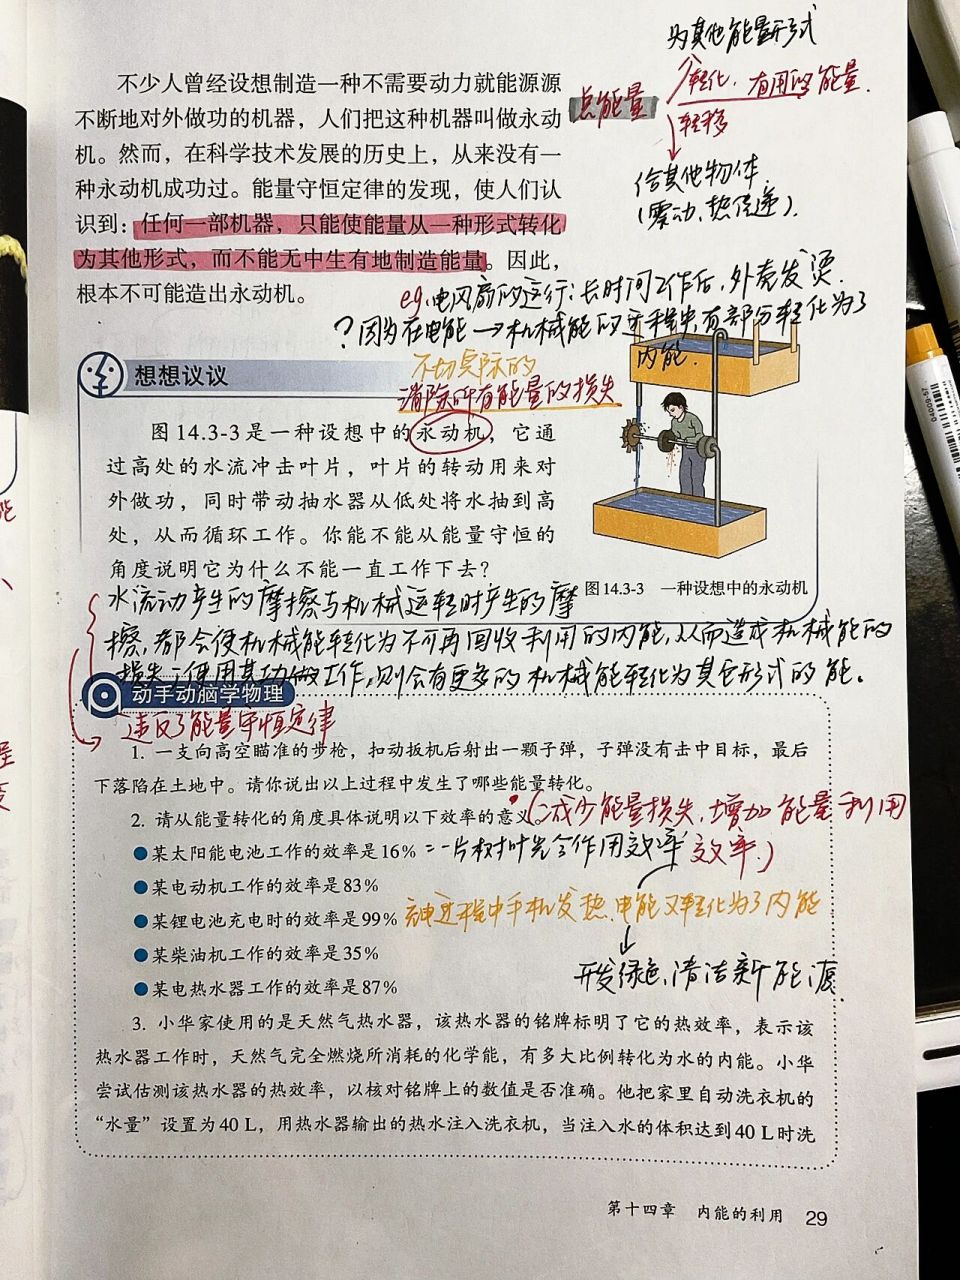 为其他能量形式
转化
有用的能量
总能量
转移
给其他物体
(震动、热传递).
不少人曾经设想制造一种不需要动力就能源源
不断地对外做功的机器，人们把这种机器叫做永动
机。然而，在科学技术发展的历史上，从来没有一
种永动机成功过。能量守恒定律的发现，使人们认
识到：任何一部机器，只能使能量从一种形式转化
为其他形式，而不能无中生有地制造能量。因此，
根本不可能造出永动机。
eg.电风扇的运行:长时间工作后，外壳发烫.
?因为在电能→机械能的过程中，有部分转化为了
内能.
不切实际的
消除所有能量的损失
想想议议
图 14.3-3 是一种设想中的永动机，它通
过高处的水流冲击叶片，叶片的转动用来对
外做功，同时带动抽水器从低处将水抽到高
处，从而循环工作。你能不能从能量守恒的
角度说明它为什么不能一直工作下去？
图 14.3-3 一种设想中的永动机
水流动产生的摩擦与机械运转时产生的摩
擦，都会使机械能转化为不可再回收利用的内能，从而造成机械能的
损失；使用其功做工作，则会有更多的机械能转化为其它形式的能。
动手动脑学物理
违反了能量守恒定律
1. 一支向高空瞄准的步枪，扣动扳机后射出一颗子弹，子弹没有击中目标，最后
下落陷在土地中。请你说出以上过程中发生了哪些能量转化。
2. 请从能量转化的角度具体说明以下效率的意义
减少能量损失，增加能量利用
效率.)
●某太阳能电池工作的效率是16% = 一片树叶光合作用效率
●某电动机工作的效率是83%
●某锂电池充电时的效率是99% 充电过程中手机发热，电能又转化为了内能
●某柴油机工作的效率是35%
开发绿色、清洁新能源.
●某电热水器工作的效率是87%
3. 小华家使用的是天然气热水器，该热水器的铭牌标明了它的热效率，表示该
热水器工作时，天然气完全燃烧所消耗的化学能，有多大比例转化为水的内能。小华
尝试估测该热水器的热效率，以核对铭牌上的数值是否准确。他把家里自动洗衣机的
“水量”设置为 40 L，用热水器输出的热水注入洗衣机，当注入水的体积达到 40 L 时洗
第十四章 内能的利用 29